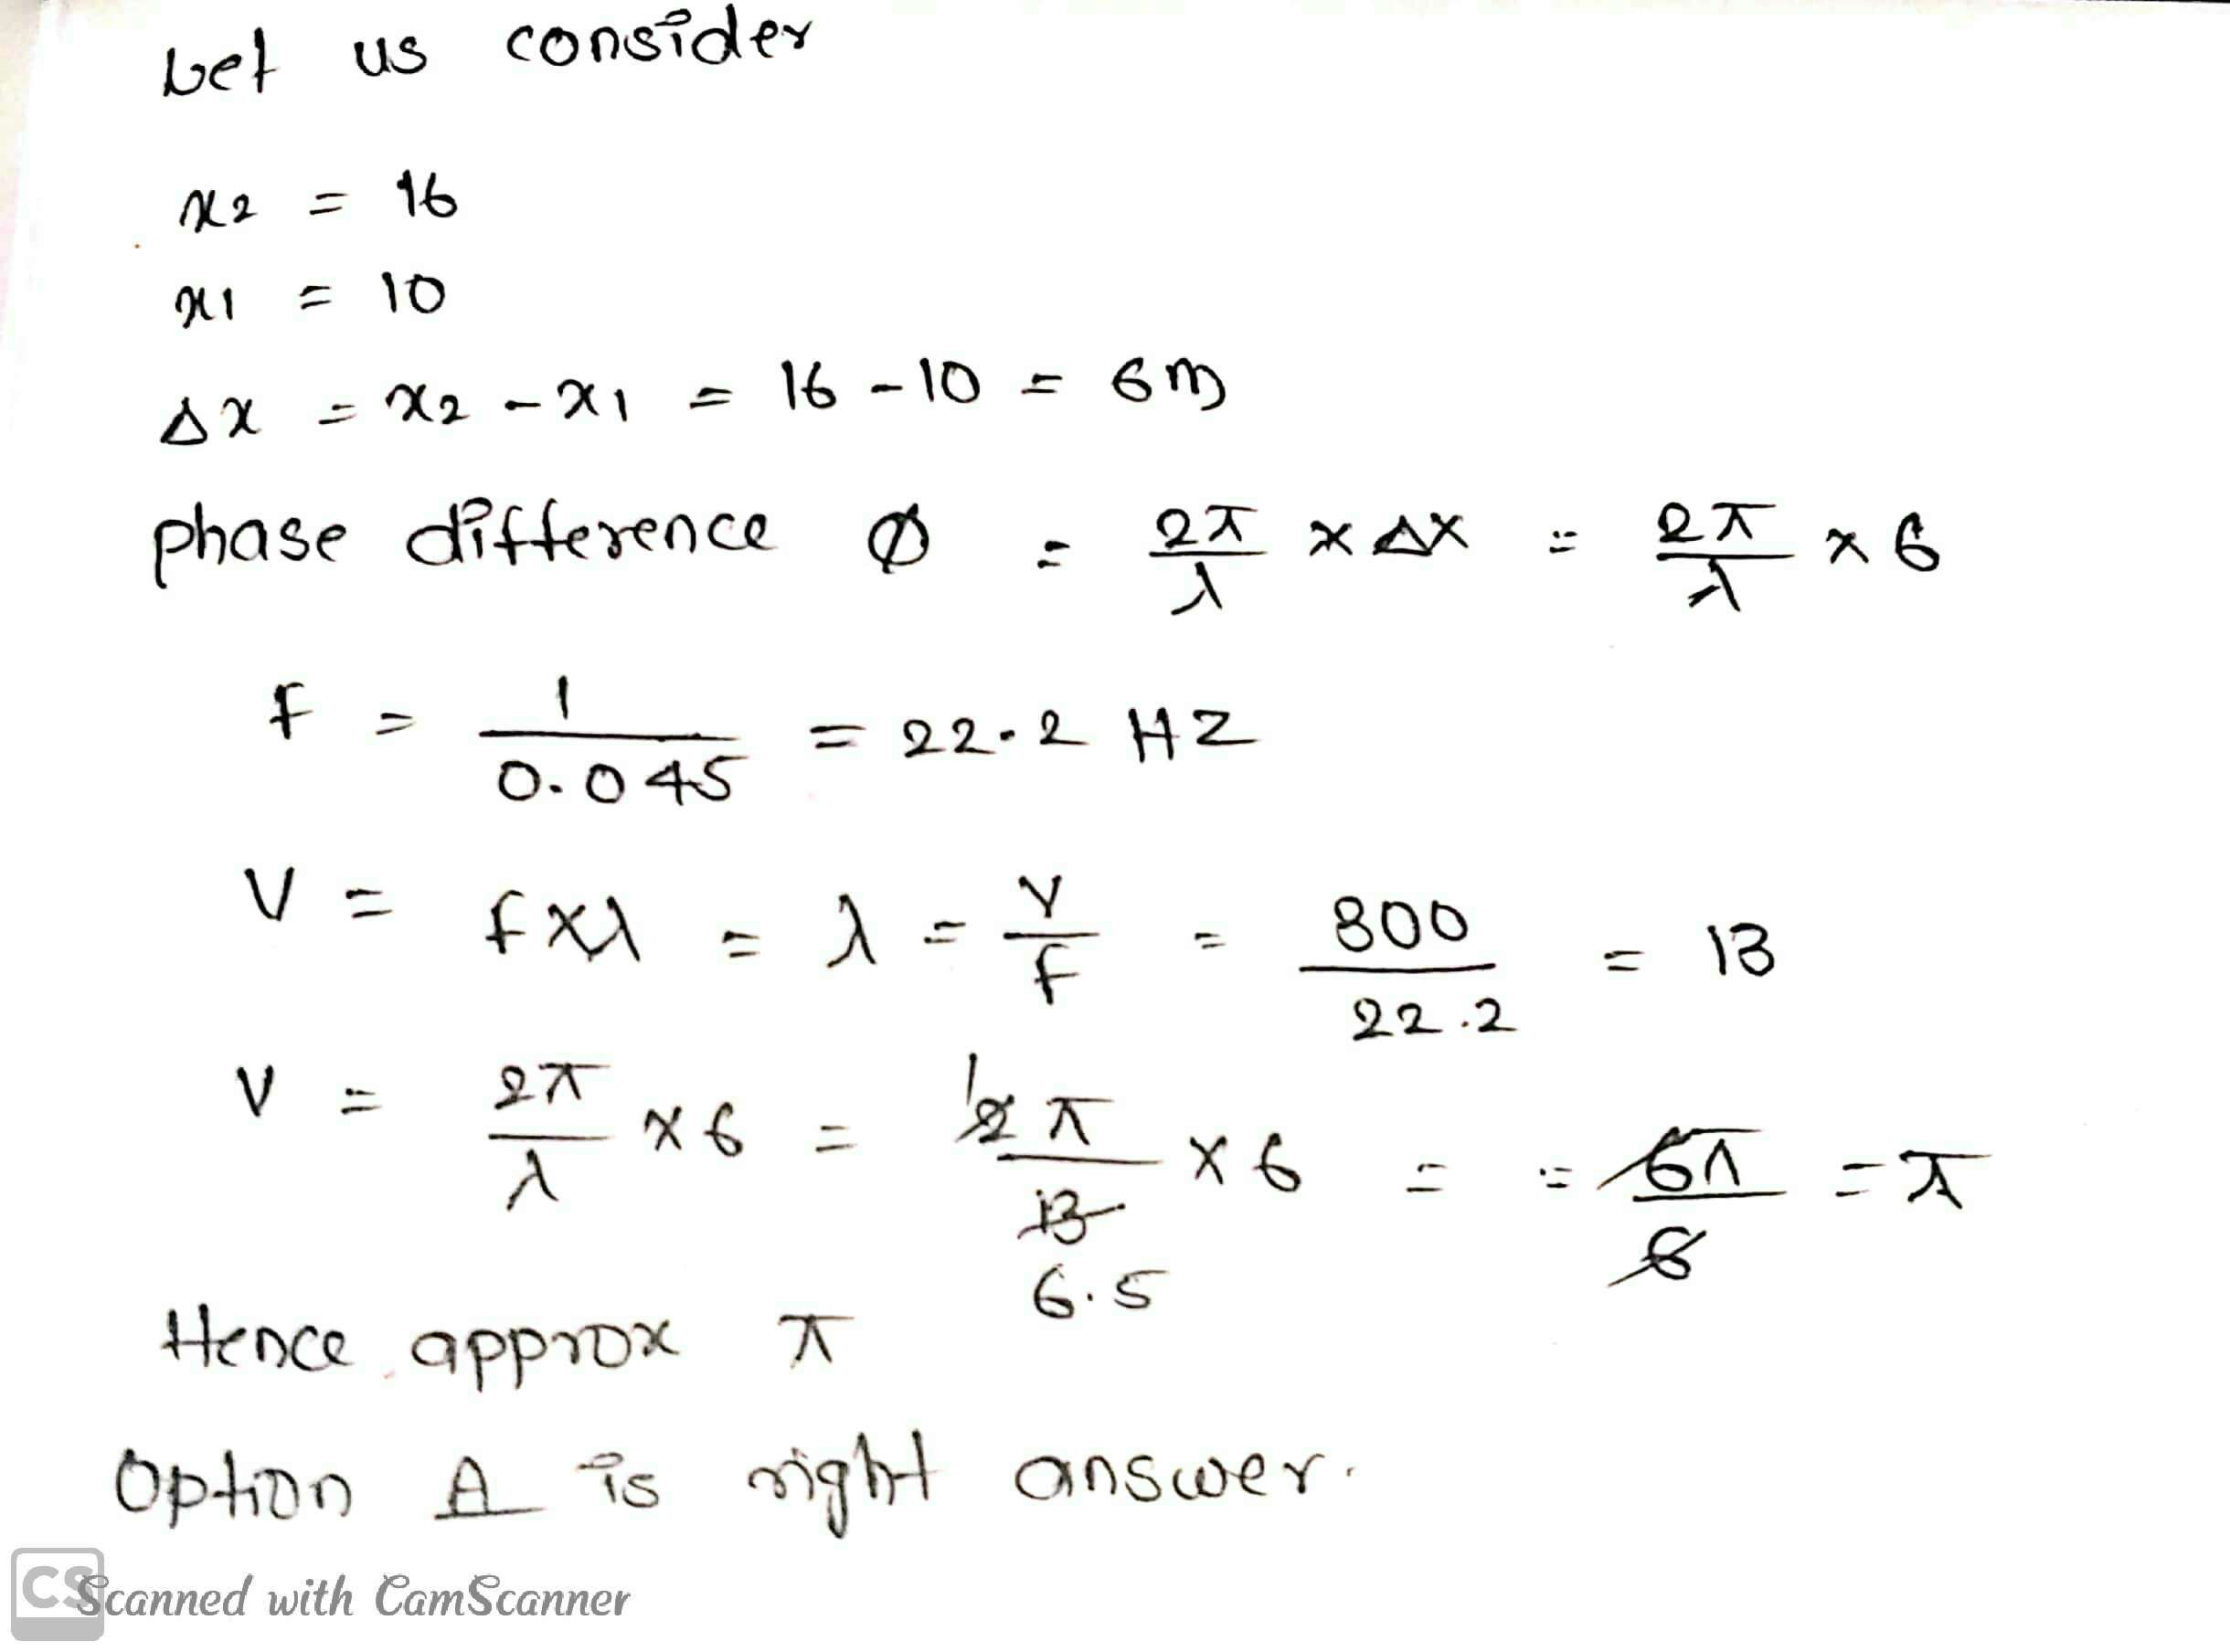 Let us consider
x2 = 16
x1 = 10
Δx = x2 - x1 = 16 - 10 = 6m
phase difference Ø = 2π/λ × Δx = 2π/λ × 6
f = 1/0.045 = 22.2 HZ
V = f×λ = λ = V/f = 300/22.2 = 13
V = 2π/λ × 6 = 2π/13 × 6 = = 6π/6 = π
1
6.5
Hence approx π
Option A is right answer.
CS Scanned with CamScanner